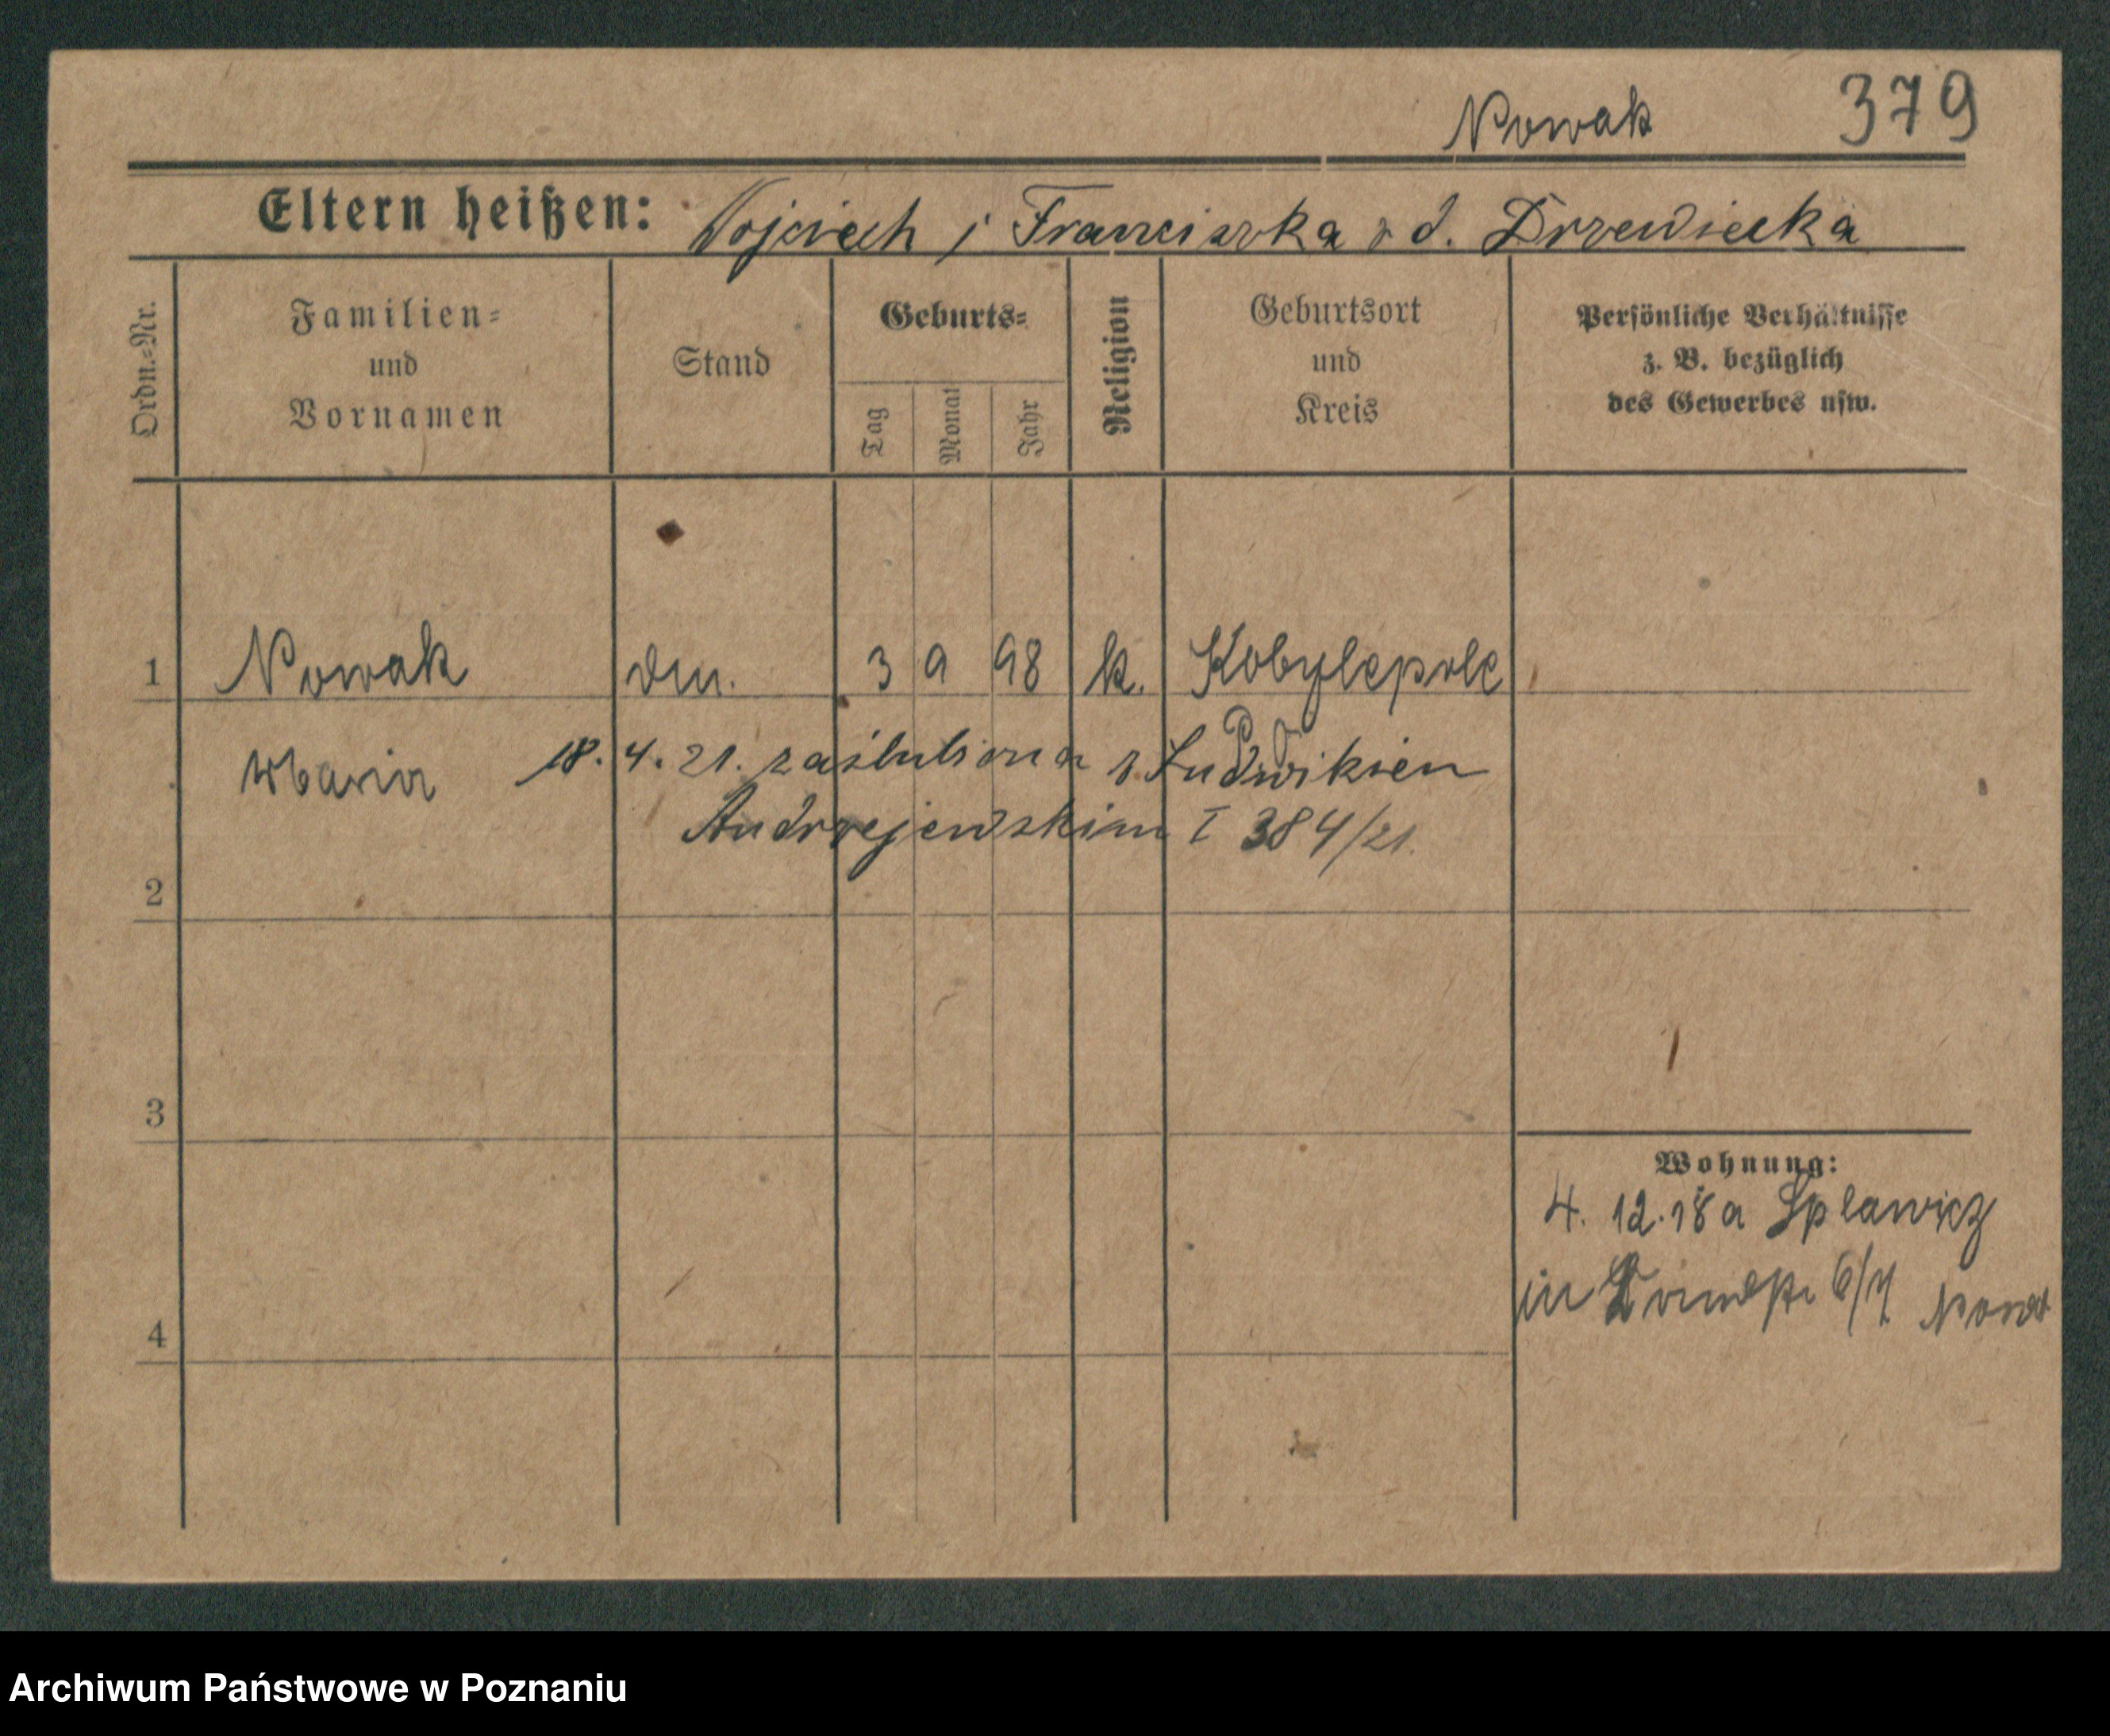 Nowak 379
Eltern heißen: Wojciech i Franciszka z d. Drzewiecka
Ordn.-Nr.
Familien-
und
Vornamen
Stand
Geburts-
Tag
Monat
Jahr
Religion
Geburtsort
und
Kreis
Persönliche Verhältnisse
z. B. bezüglich
des Gewerbes usw.
1 Nowak dm. 3 9 98 k. Kobylepole
Maria 18. 4. 21. zaślubiona z Ludwikiem
Andrzejewskim I 384/21.
2
3
4
Wohnung:
4. 12. 18 a Splawicz
in 6/7 Nowak
Archiwum Państwowe w Poznaniu